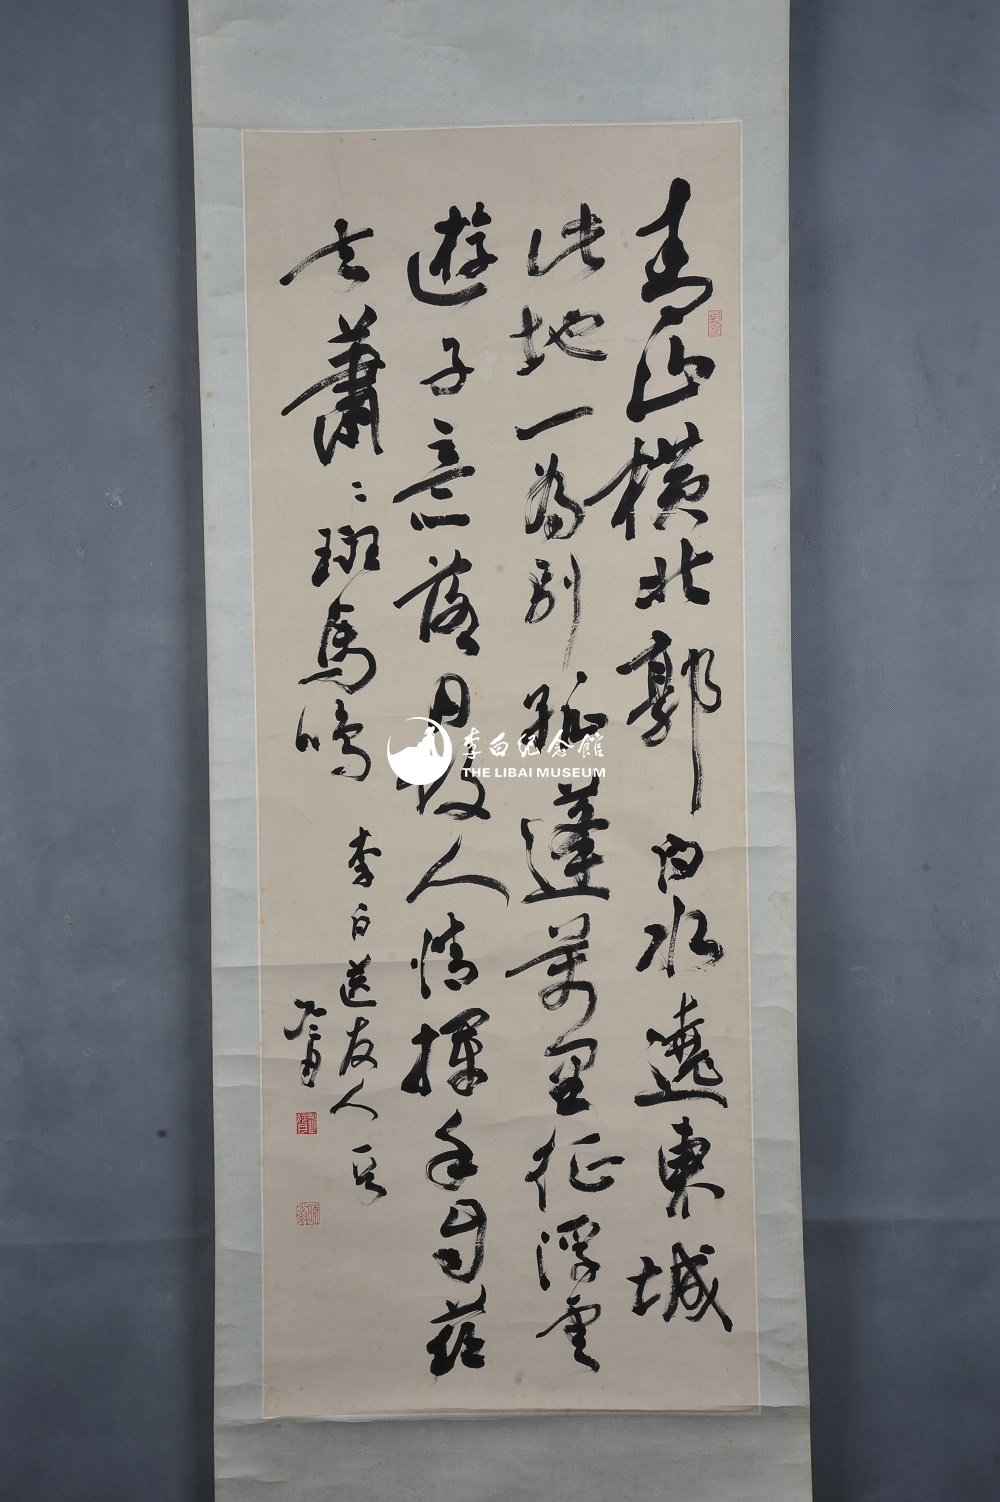 青山横北郭白水遶東城
此地一為别孤蓬萬里征浮雲
遊子意落日故人情揮手自茲
去蕭〻班馬鳴
李白送友人
李白纪念館
THE LIBAI MUSEUM